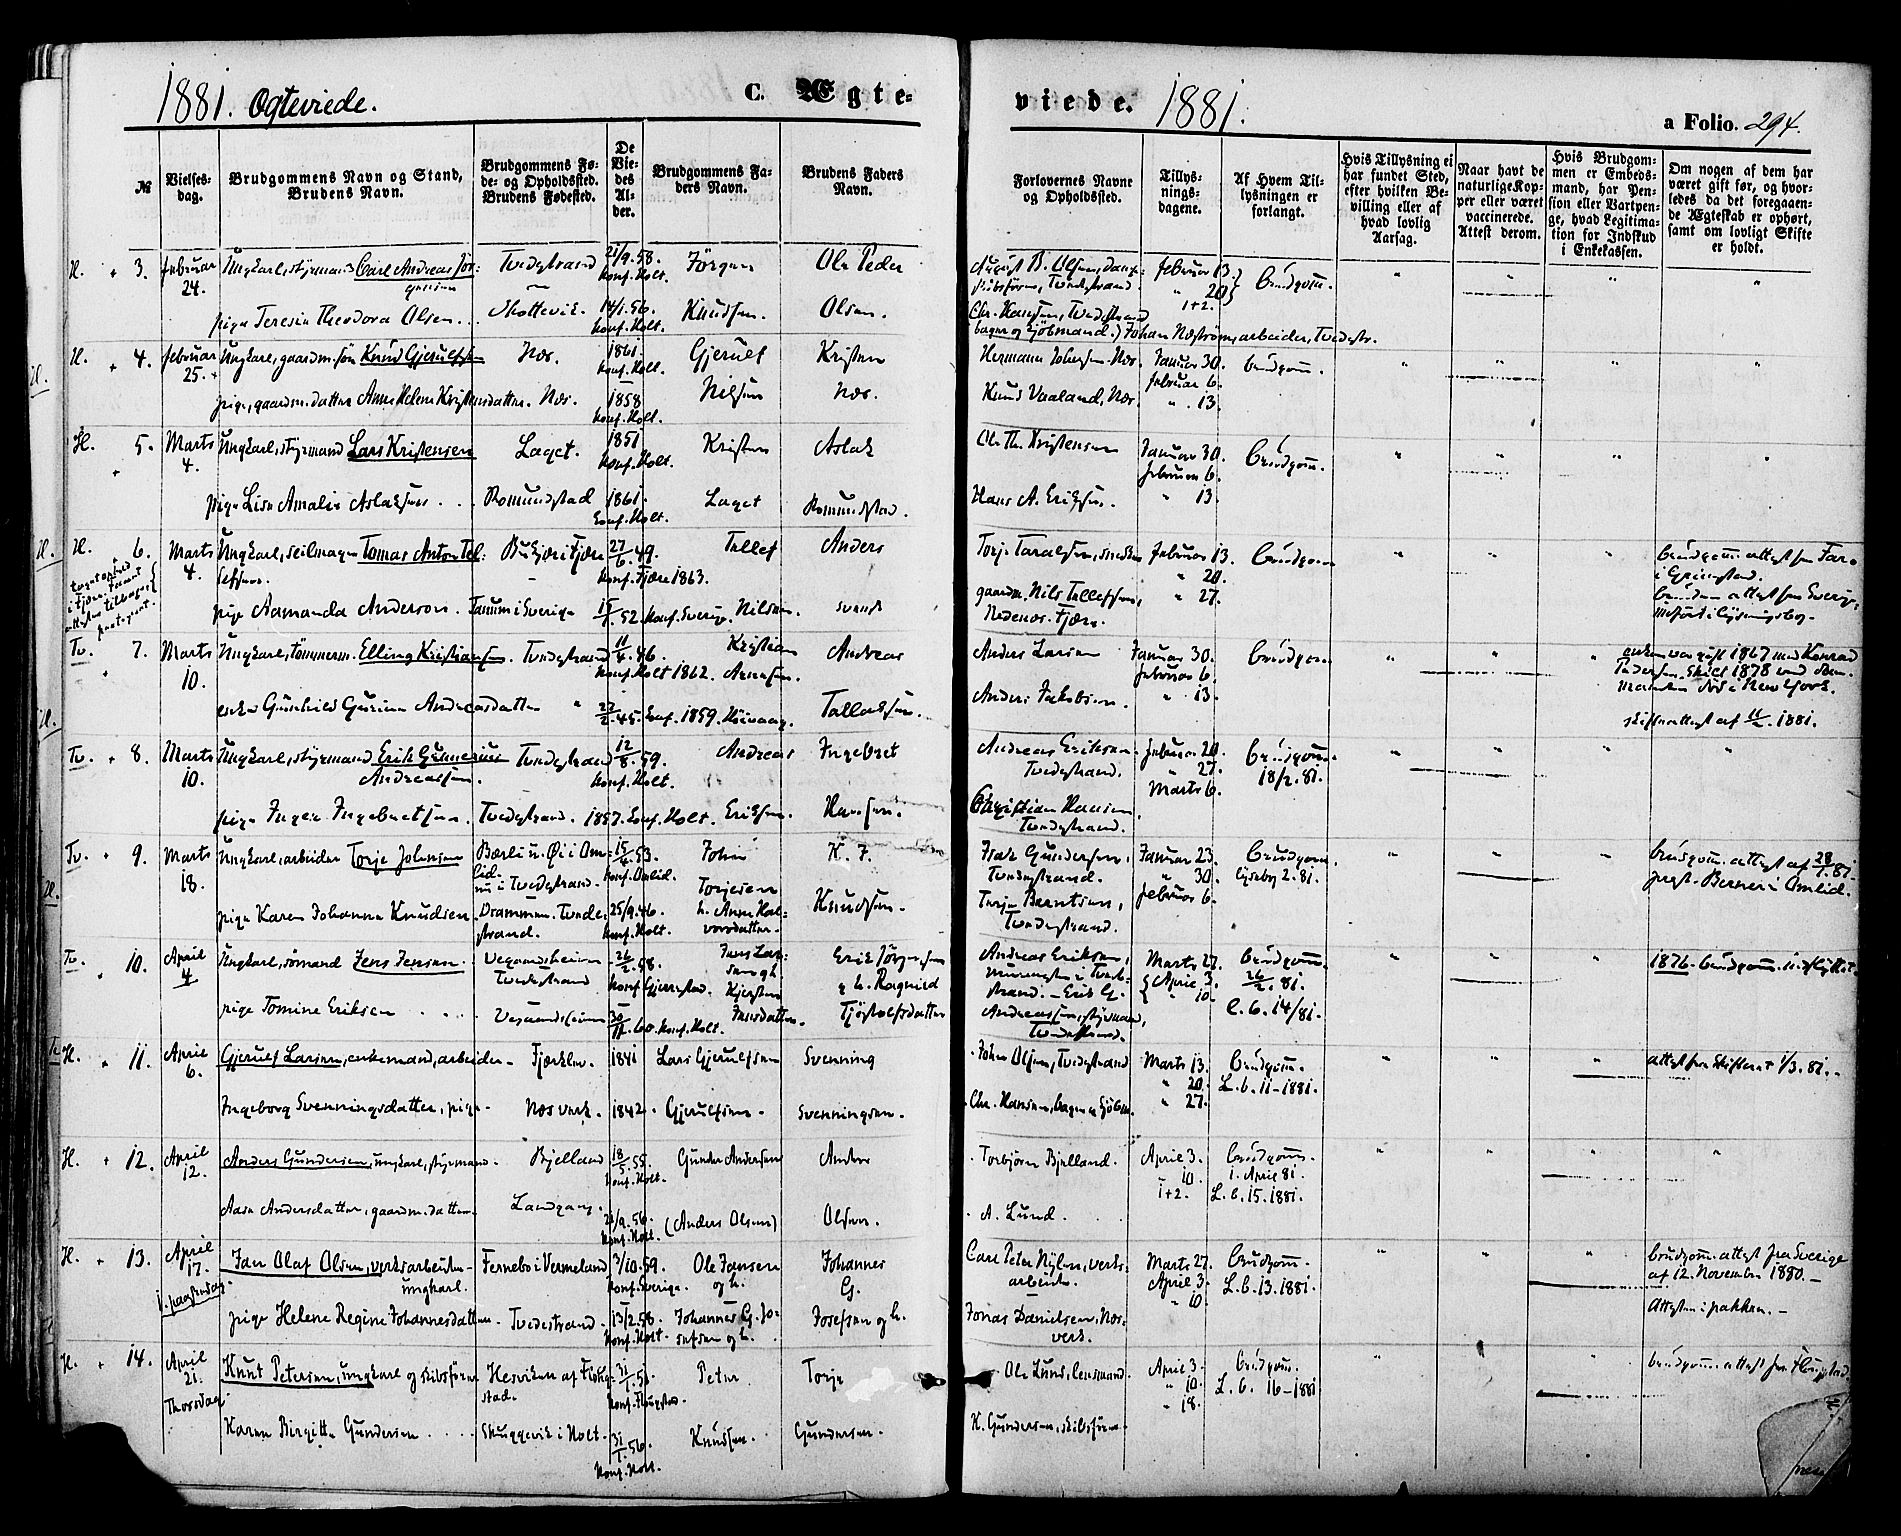 1881. Ægteviede.
C. Ægte-
№
Vielses-
dag.
Brudgommens Navn og Stand,
Brudens Navn.
Brudgommens Fø-
de- og Opholdssted.
Brudens Fødested.
De
Vie-
des
Al-
der.
Brudgommens Fa-
ders Navn.
Brudens Faders
Navn.
H. 3. Februar Ungkarl, styrmand Carl Andreas Jør- Tvedestrand 21/9.58. Jörgen Ole Peder
24. gensen Konf. Holt.
pige Teresia Theodora Olsen. Skottevik. 14/1.56. Knudsen. Olsen.
Konf. Holt.
H. 4. Februar Ungkarl, gaardm. sön Knud Gjerulfsen Næs. 1861. Gjerulf Kristen
25. Konf. Holt.
pige, gaardm. datter Anne Helene Kristensdatter. Næs. 1858. Nilsen Næs.
Konf. Holt.
H. 5. Marts Ungkarl, styrmand Lars Kristensen Laget. 1851 Kristen Aslak
4. Konf. Holt.
pige Lisa Amalie Aslaksen Romundstad 1861. Laget Romundstad.
Konf. Holt.
H. 6. Marts Ungkarl, seilmager Tomas Anton Tel- i Fjære 27/6.49. Tellef Anders
4. lefsen. Konf. Fjære 1863.
pige Aamanda Anderson. Tanum i Sverige 52. Konf. Sverig. Nilsen. svensk
Tv. 7. Marts Ungkarl, tömmerm. Elling Kristiansen. Tvedestrand 11/4.46. Kristian Andreas
10. Konf. Holt 1862. Arnesen.
enke Gunhild Gurine Andreasdatter 27/2.45. Konf. 1859. Höivaag. Tallaksen.
Tv. 8. Marts Ungkarl, styrmand Erik Gunerius Tvedestrand 12/8.59. Andreas Ingebret
10. Andreassen. Konf. Holt.
pige Inger Ingebretsen. Tvedestrand. 1857. Konf. Holt. Eriksen. Hansen.
Tv. 9. Marts Ungkarl, arbeider Torje Johnsen Om- 15/4.53. John K. F.
18. lid- nu i Tvedestrand. Konf. Omlid. Torjesen
pige Karen Johanne Knudsen. Drammen. Tvede- 25/9.46. h. Anne Hal- Knudsen.
strand. Konf. Holt. vorsdatter.
Tv. 10. April Ungkarl, sömand Jens Jensen. Vegaardsheien 26/2.58. Jens Lar- Erik Jörgensen
4 Tvedestrand Konf. Gjerrestad. sen & h. Kjersten & h. Ragnild
pige Tomine Eriksen Vegaardsheien 60. Konf. Holt. Jensdatter. Tjöstolfsdatter
H. 11. April Gjerulf Larsen, enkemand, arbeider Fjærklev. 1841 Lars Gjerulfsen Svenning
6.
Ingeborg Svenningsdatter, pige. Næs verk. 1842. Gjerulfsen. Svenningsen.
H. 12. April Anders Gundersen, ungkarl, styrmand. Bjelland 18/5.55. Gunder Andersen Anders
12. Konf. Holt.
Aase Andersdatter, gaardm. datter. Landgang. 21/9.56. (Anders Olsen) Olsen.
Konf. Holt.
H. 13. April Jan Olaf Olsen, verksarbeider Fernebo i Vermeland 3/10.59. Ole Jansen Johannes
17. ungkarl. Konf. Sverige. og h. G.
1. paaskedag
pige Helene Regine Johannesdatter. Tvedestrand. 13/2.58. Johannes G. Jo- Josefsen og h.
Konf. Holt. sefsen og h.
H. 14. April Knut Petersen, ungkarl og skibsförer Hesviken af Flosta- 31/1.51. Peter Torje
21. stad. Konf.
Thorsdag
Karen Birgitte Gundersen Skuggevik i Holt. 31/1.56. Knudsen. Gundersen.
Konf. Holt.
viede. 1881.
a Folio. 294.
Forlovernes Navne
og Opholdssted.
Tillys-
nings-
dagene.
Af Hvem Til-
lysningen er
forlangt.
Hvis Tillysning ei
har fundet Sted,
efter hvilken Be-
villing eller af
hvad lovlig
Aarsag.
Naar havt de
naturlige Kop-
per eller været
vaccinerede.
Attest derom.
Hvis Brudgom-
men er Embeds-
mand, har Pen-
sion eller Vartpen-
ge, hvad Legitima-
tion for Indskud
i Enkekassen.
Om nogen af dem har
været gift før, og hvor-
ledes da det foregaaen-
de Ægteskab er ophørt,
samt om lovligt Skifte
er holdt.
August B. Olsen, Februar 13. brudgom.
skibsförer, Tvedestrand. " 20
Chr. Hansen, Tvedestrand 1+2.
(bager og Sjömand.) Johan Næström, arbeider, Tvedestr.
Herman Johnsen Næs. Januar 30. brudgom.
Februar 6.
Knud Vaaland, Næs. " 13.
Ole Th. Kristensen Januar 30. brudgom.
Februar 6.
Hans A. Eriksen. " 13.
Torje Taraldsen, Februar 13. brudgom brudgom. attest fra Fær.
" 20. i Grimstad.
gaardm. Nils Tellefsen, " 27. bruden attest fra Sverig,
Nedenes. Fjære. indfört i lysningsbog.
Anders Larsen Januar 30. brudgom enken var gift 1867 med Konrad
Februar 6. Pedersen. Skilt 1878 ved dom.
Anders Jakobsen. " 13. manden död i New York.
skifteattest af 11/2. 1881.
Andreas Eriksen. Februar 20. brudgom.
Tvedestrand. " 27. 18/2.81.
Marts 6.
Christian Hansen,
Tvedestrand.
Isak Gundersen, Januar 23. brudgom. brudgom. attest af 28/1.81.
Tvedestrand. " 30. Lysebog 2.81. prest Berner i Omlid.
Terje Berntsen, Februar 6.
Tvedestrand.
Andreas Eriksen, Marts 27. brudgom. 1876. brudgom. indflyttet.
i Tvede- April 3. 26/2.81.
strand. – Erik G. " 10. L.b. 14/81.
Andreassen, styrmand,
Tvedestrand.
Johan Olsen, Tvedestrand Marts 13. brudgom. attest fra skifteret 1/3.81.
" 20. L.b. 11–1881.
Chr. Hansen, bager & Sjöm. " 27.
Torbjörn Bjelland. April 3. brudgom.
10. 1. April 81.
1+2. L.b. 15. 1881.
A. Lund.
Carl Peter Nylen, verks- Marts 27. brudgom. brudgom. attest fra Sverige
arbeider. April 3. L.b. 13. 1881. af 12. November 1880.–
" 10.
Jonas Danielsen, Næs- Attesten i pakken.–
verk.
Ole Lund, lensmand. April 3. brudgom. brudgom. attest fra
" 10. L.b. 16–1881
" 18.
K. Gundersen, skibsförer.